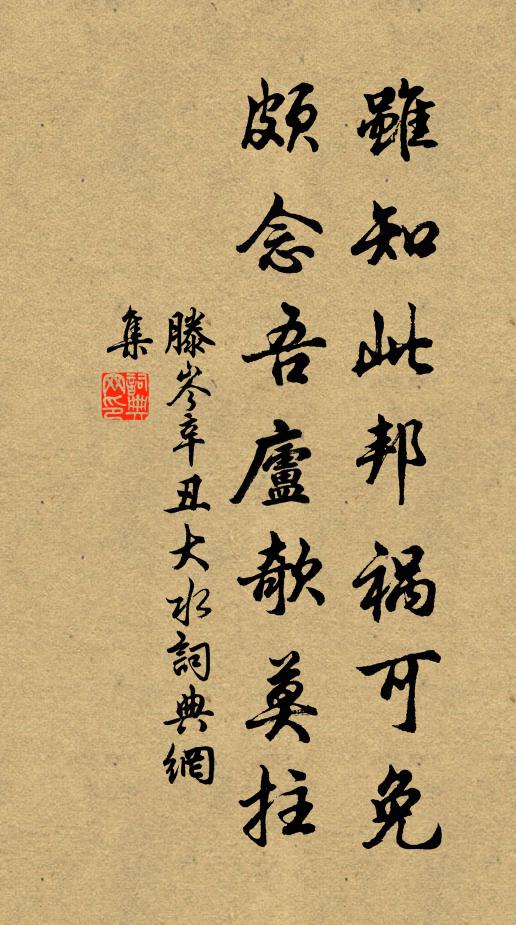 雖知此邦禍可免
頗念吾廬欹莫拄
滕岑辛丑大水詞典網
集
詞典網印